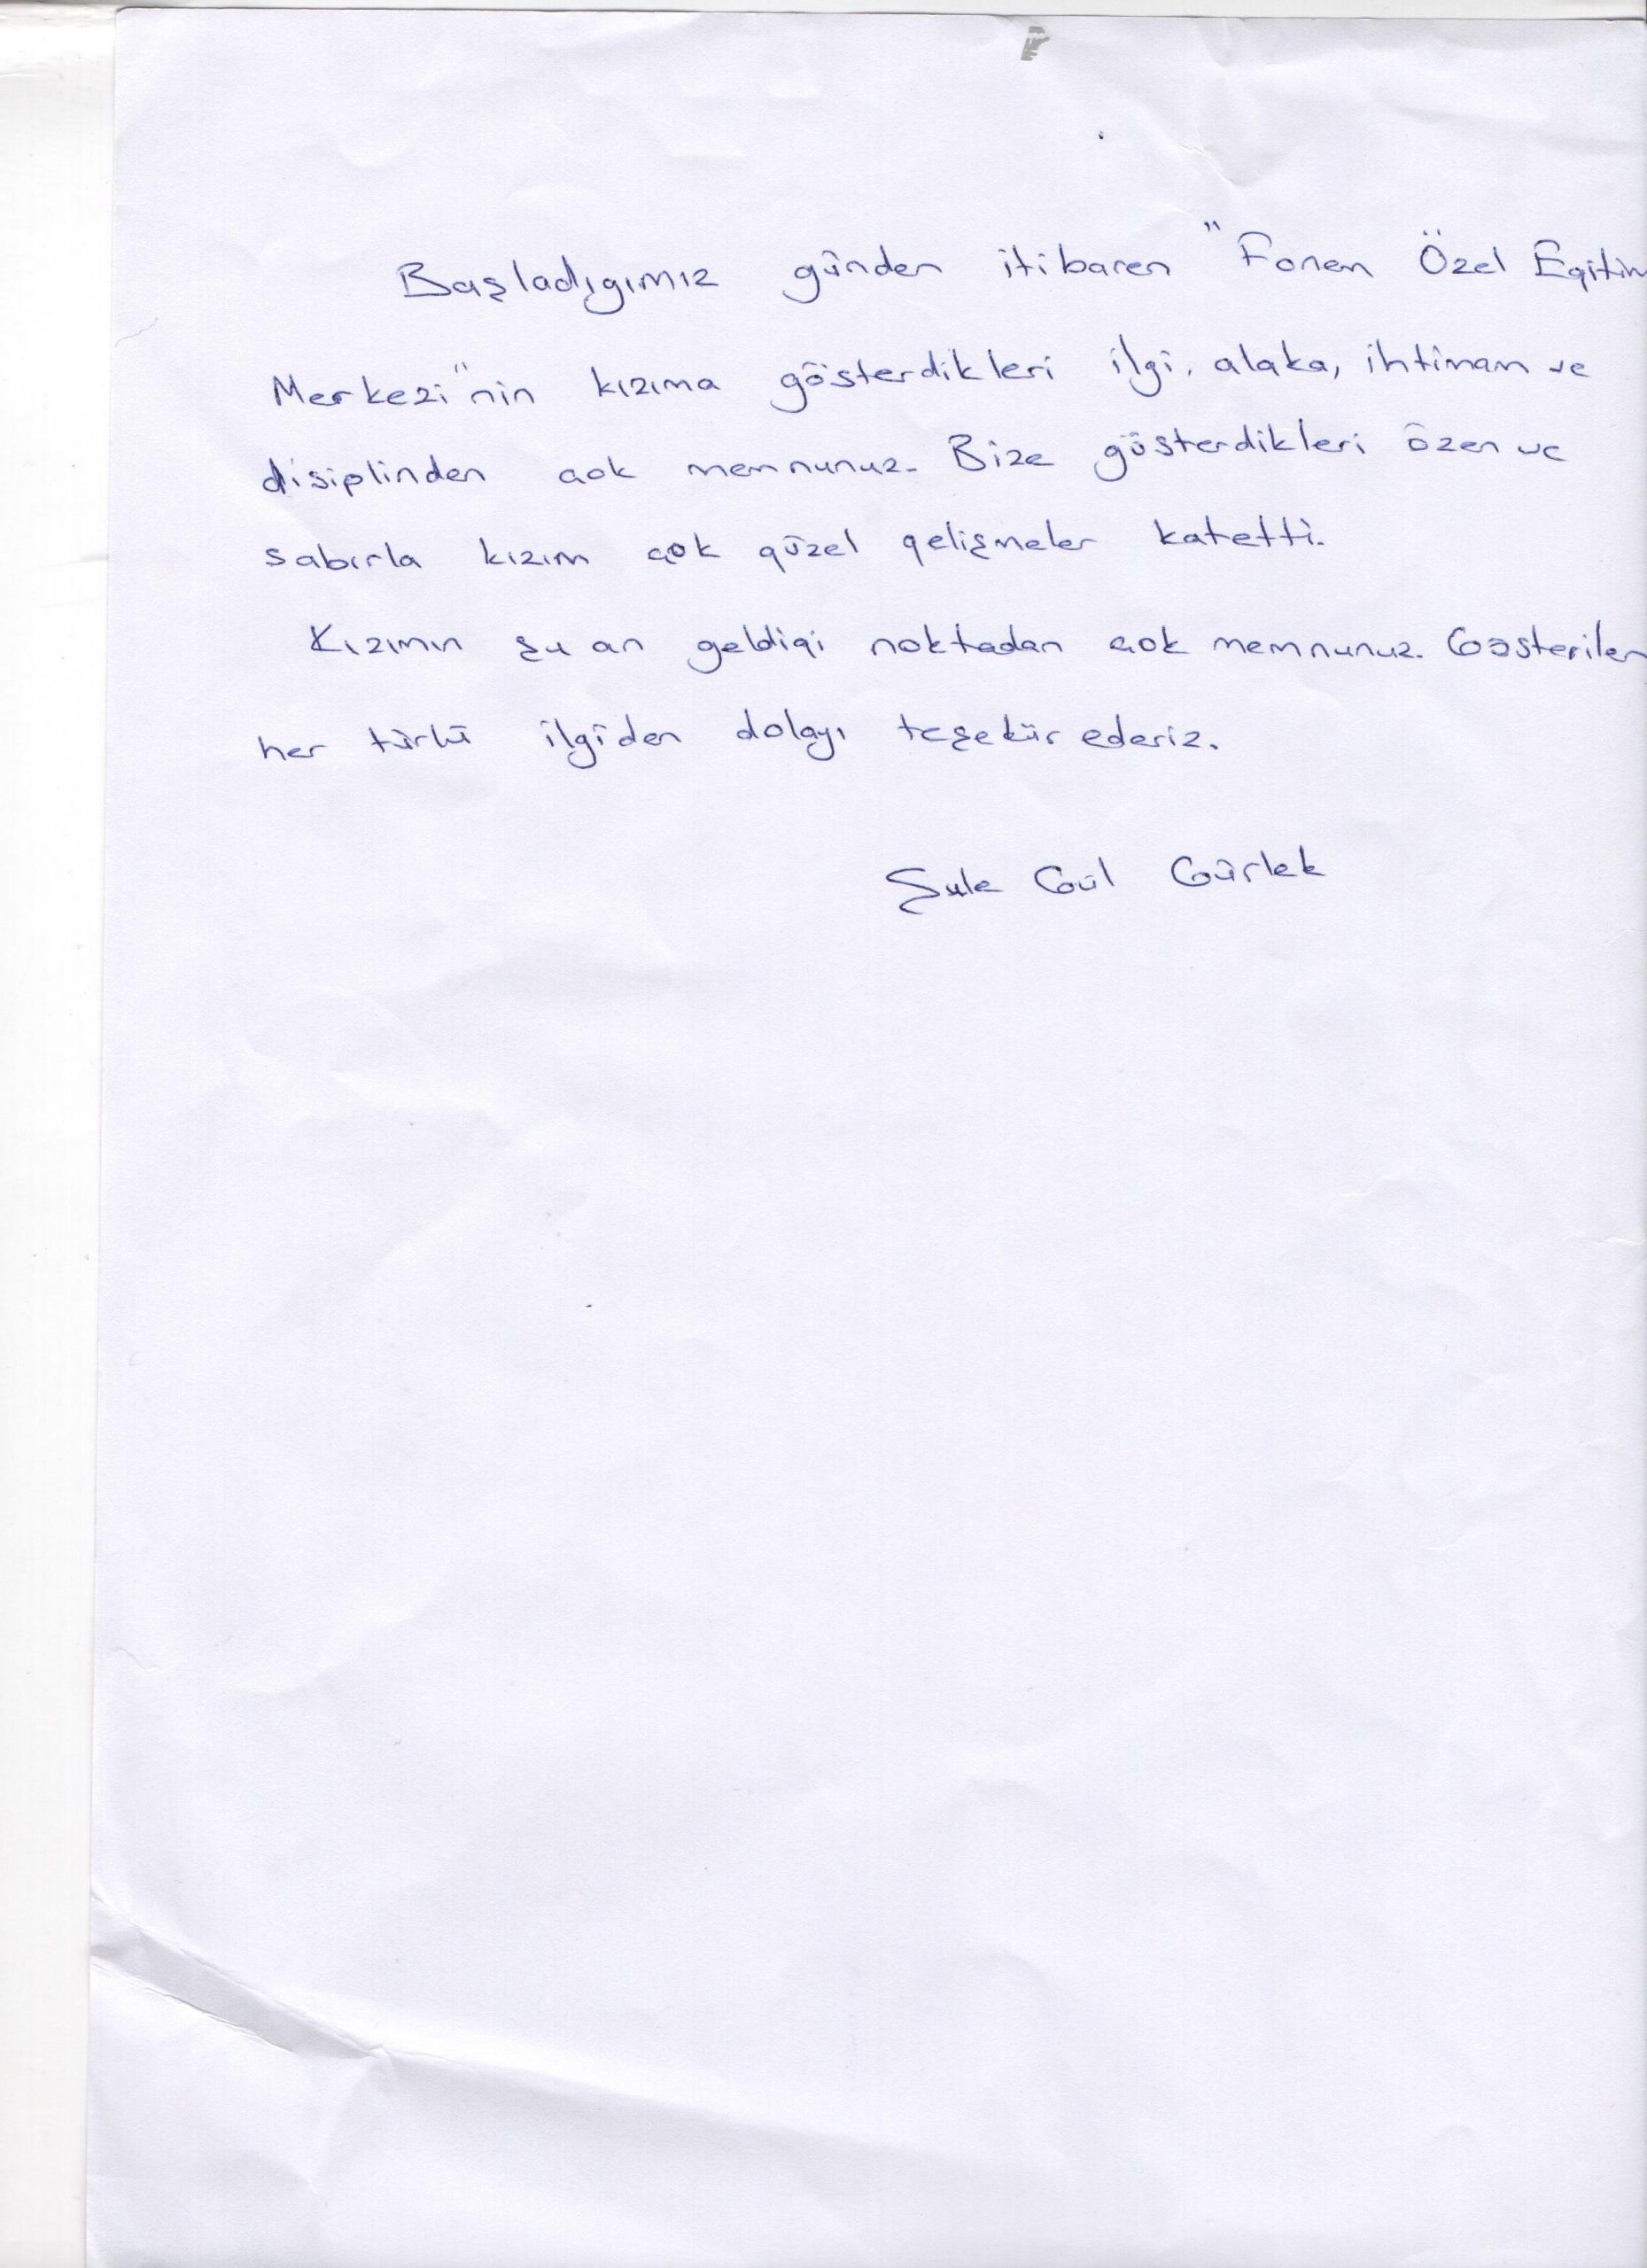 Başladıgımız günden itibaren "Fonem Özel Egitim
Merkezi"nin kızıma gösterdikleri ilgi, alaka, ihtimam ve
disiplinden çok memnunuz. Bize gösterdikleri özen ve
sabırla kızım çok güzel gelişmeler katetti.
Kızımın şu an geldigi noktadan çok memnunuz. Gösterilen
her türlü ilgiden dolayı teşekür ederiz.
Şule Gül Gürlek